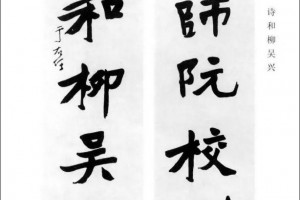 诗和柳吴兴
師阮校
和柳吴
于右任